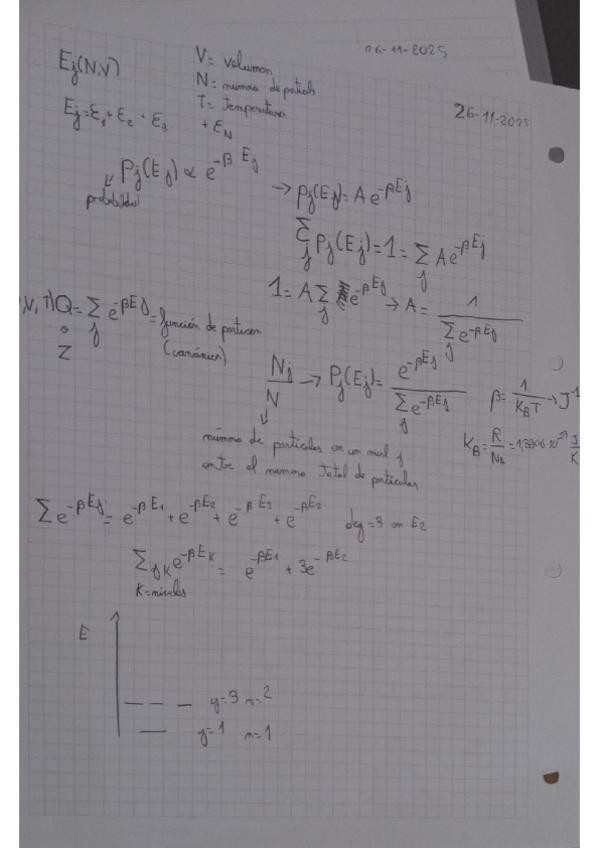 26-11-2025
26-11-2025
E_j(N,V)
V = volumen
N = número de partículas
T = temperatura
E_j = ε_1 + ε_2 + ε_3 + ε_N
P_j(E_j) ∝ e^{-β E_j} → P_j(E_j) = A e^{-βE_j}
probabilidad
∑_j P_j(E_j) = 1 = ∑_j A e^{-βE_j}
1 = A ∑_j e^{-βE_j} → A = 1 / ∑_j e^{-βE_j}
,V,T) Q = ∑_j e^{-βE_j} = función de particion
o
Z
(canónica)
N_j / N → P_j(E_j) = e^{-βE_j} / ∑_j e^{-βE_j}
β = 1 / K_B T → J^{-1}
número de partículas en un nivel j
entre el número total de partículas
K_B = R / N_A = 1,3806·10^{-23} J/K
∑ e^{-βE_j} = e^{-βE_1} + e^{-βE_2} + e^{-βE_2} + e^{-βE_2} deg = 3 en E_2
∑ g_K e^{-βE_K} = e^{-βE_1} + 3e^{-βE_2}
K = niveles
E
g=3 n=2
g=1 n=1